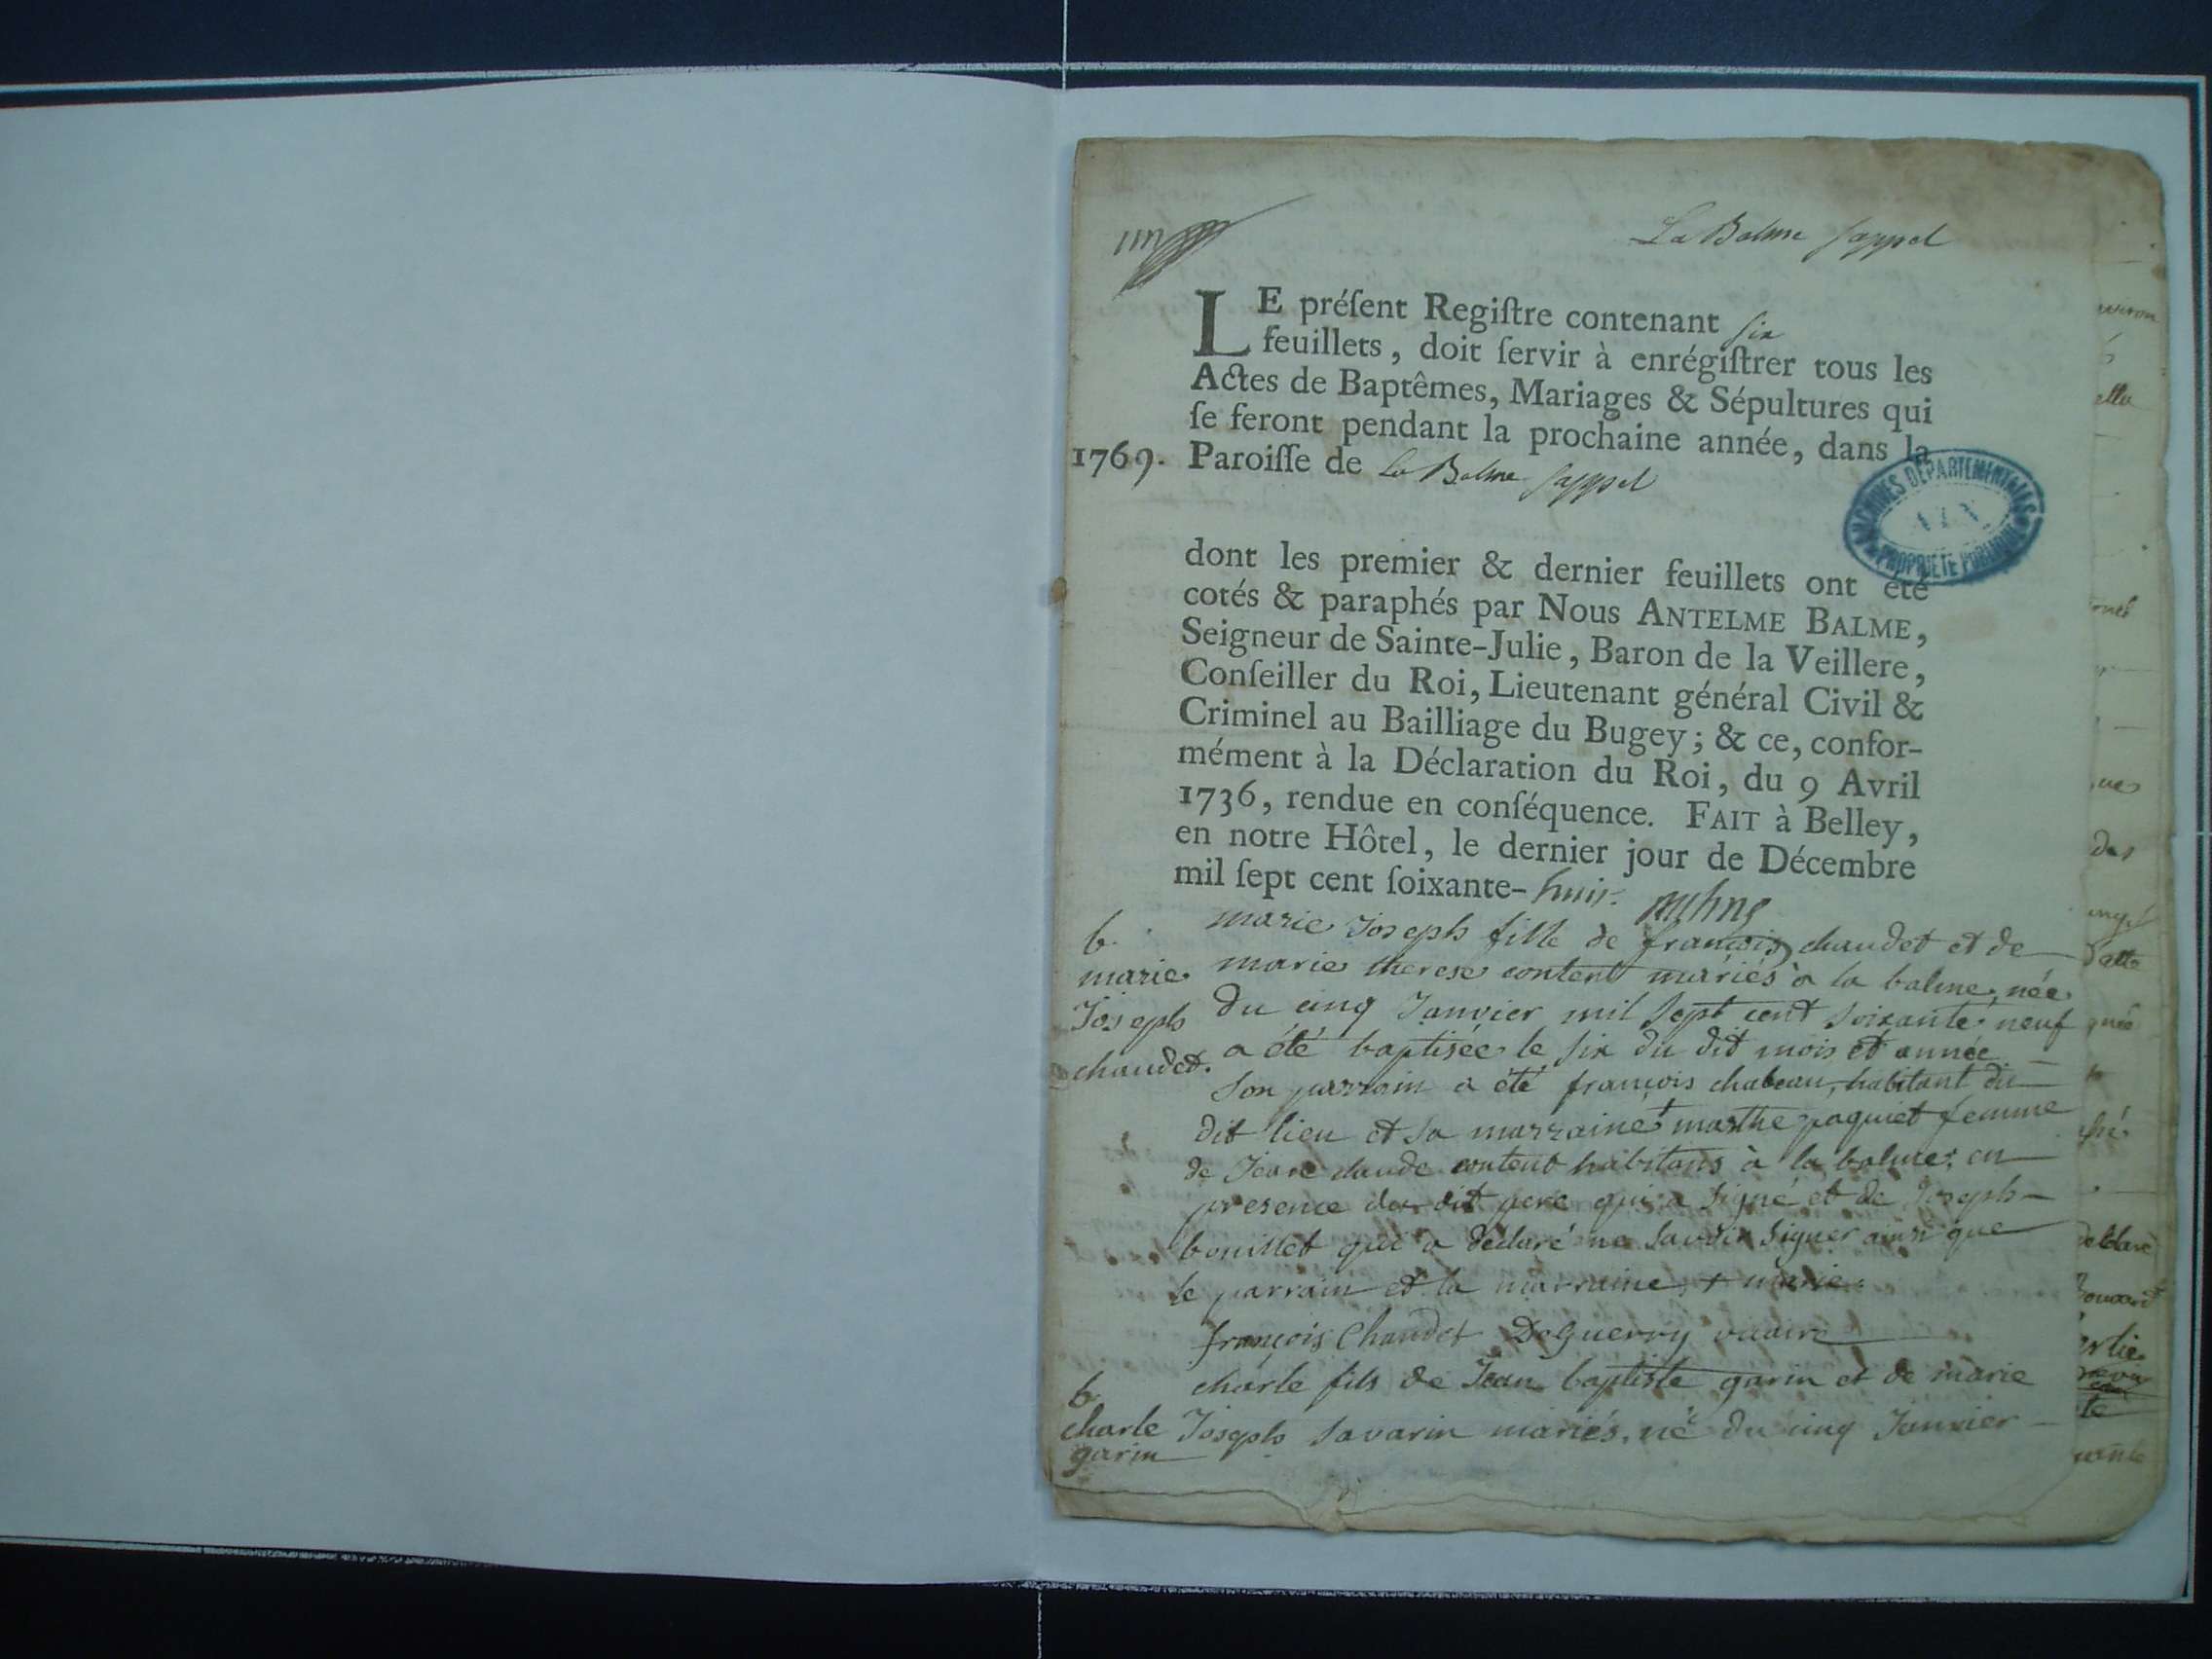 La Balme sappel
LE préſent Regiſtre contenant six
feuillets, doit ſervir à enrégiſtrer tous les
Actes de Baptêmes, Mariages & Sépultures qui
ſe feront pendant la prochaine année, dans la
1769. Paroiſſe de La Balme sappel
ARCHIVES DEPARTEMENTALES
AIN
PROPRIETE PUBLIQUE
dont les premier & dernier feuillets ont été
cotés & paraphés par Nous ANTELME BALME,
Seigneur de Sainte-Julie, Baron de la Veillere,
Conſeiller du Roi, Lieutenant général Civil &
Criminel au Bailliage du Bugey; & ce, confor-
mément à la Déclaration du Roi, du 9 Avril
1736, rendue en conſéquence. FAIT à Belley,
en notre Hôtel, le dernier jour de Décembre
mil ſept cent ſoixante-huit.
b.
marie
Joseph
chaudet.
marie Joseph fille de françois chaudet et de
marie therese content mariés à la balme, née
du cinq Janvier mil sept cent soixante neuf
a été baptisée le six du dit mois et année
son parrain a été françois chabeau, habitant du
dit lieu et sa marraine + marthe paquiet femme
de Jean claude content habitans à la balme, en
presence du dit pere qui a signé et de Joseph
bouillet qui a declaré ne savoir signer ainsi que
le parrain et la marraine + marie
françois Chaudet Deguerry vicaire
b
charle
garin
charle fils de Jean baptiste garin et de marie
Joseph savarin mariés, né du cinq Janvier